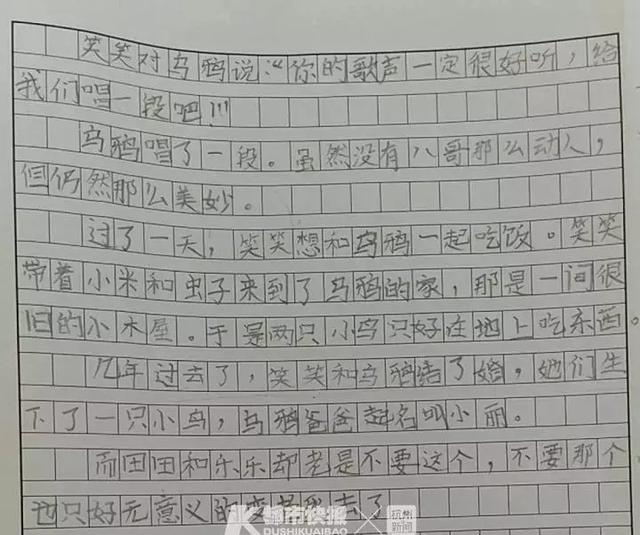 笑笑对乌鸦说:“你的歌声一定很好听,给
我们唱一段吧!!!
乌鸦唱了一段。虽然没有八哥那么动人,
但仍然那么美妙。
过了一天,笑笑想和乌鸦一起吃饭。笑笑
带着小米和虫子来到了乌鸦的家,那是一间很
旧的小木屋。于是两只小鸟只好在地上吃东西。
几年过去了,笑笑和乌鸦结了婚,她们生
下了一只小鸟,乌鸦爸爸起名叫小丽。
而田田和乐乐却老是不要这个,不要那个
也只好无意义的变老死去了
都市快报 × 杭州新闻
DUSHIKUAIBAO